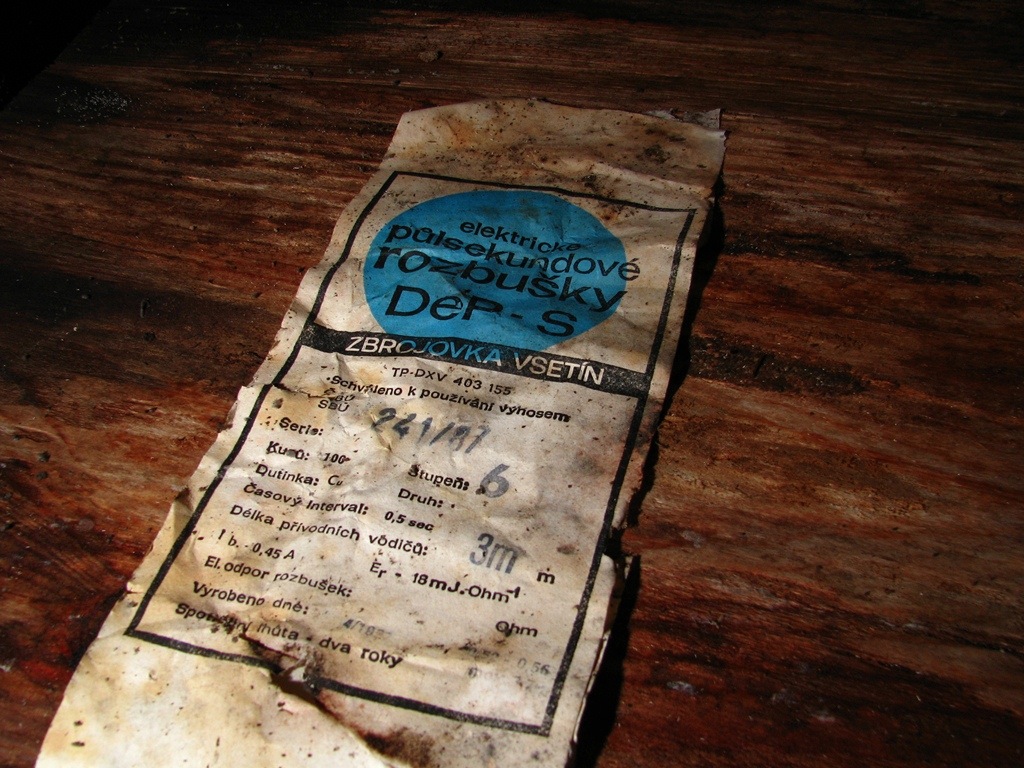 elektrické
půlsekundové
rozbušky
DeP-S
ZBROJOVKA VSETÍN
TP-DXV 403 155
Schváleno k používání výnosem
SBÚ
Serie: 241/87
Kusů: 100 Stupeň: 6
Dutinka: Cu Druh:
Časový interval: 0,5 sec
Délka přívodních vodičů: 3m m
I b. - 0,45 A Er - 18 mJ.Ohm-1
El. odpor rozbušek: Ohm
Vyrobeno dne:
Spotřební lhůta - dva roky